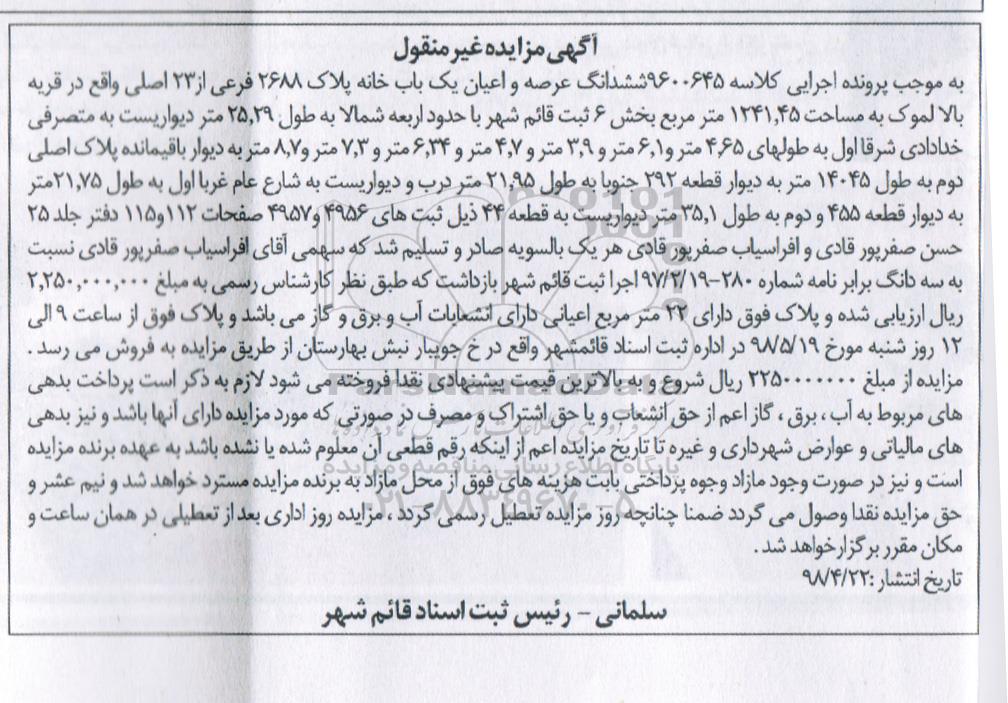 آگهی مزایده غیر منقول
به موجب پرونده اجرایی کلاسه ۹۶۰۰۶۴۵ ششدانگ عرصه و اعیان یک باب خانه پلاک ۲۶۸۸ فرعی از ۲۳ اصلی واقع در قریه
بالا لموک به مساحت ۱۲۴۱,۴۵ متر مربع بخش ۶ ثبت قائم شهر با حدود اربعه شمالا به طول ۲۵,۲۹ متر دیواریست به متصرفی
خدادادی شرقا اول به طولهای ۴,۶۵ متر و ۶,۱ متر و ۳,۹ متر و ۴,۷ متر و ۶,۳۴ متر و ۷,۳ متر و ۸,۷ متر به دیوار باقیمانده پلاک اصلی
دوم به طول ۱۴۰۴۵ متر به دیوار قطعه ۲۹۲ جنوبا به طول ۲۱,۹۵ متر درب و دیواریست به شارع عام غربا اول به طول ۲۱,۷۵ متر
به دیوار قطعه ۴۵۵ و دوم به طول ۳۵,۱ متر دیواریست به قطعه ۴۴ ذیل ثبت های ۴۹۵۶ و ۴۹۵۷ صفحات ۱۱۲ و ۱۱۵ دفتر جلد ۲۵
حسن صفرپور قادی و افراسیاب صفرپور قادی هر یک بالسویه صادر و تسلیم شد که سهمی آقای افراسیاب صفرپور قادی نسبت
به سه دانگ برابر نامه شماره ۲۸۰-۹۷/۲/۱۹ اجرا ثبت قائم شهر بازداشت که طبق نظر کارشناس رسمی به مبلغ ۲,۲۵۰,۰۰۰,۰۰۰
ریال ارزیابی شده و پلاک فوق دارای ۲۲ متر مربع اعیانی دارای انشعابات آب و برق و گاز می باشد و پلاک فوق از ساعت ۹ الی
۱۲ روز شنبه مورخ ۹۸/۵/۱۹ در اداره ثبت اسناد قائمشهر واقع در خ جویبار نبش بهارستان از طریق مزایده به فروش می رسد .
مزایده از مبلغ ۲۲۵۰۰۰۰۰۰۰ ریال شروع و به بالاترین قیمت پیشنهادی نقدا فروخته می شود لازم به ذکر است پرداخت بدهی
های مربوط به آب ، برق ، گاز اعم از حق انشعاب و یا حق اشتراک و مصرف در صورتی که مورد مزایده دارای آنها باشد و نیز بدهی
های مالیاتی و عوارض شهرداری و غیره تا تاریخ مزایده اعم از اینکه رقم قطعی آن معلوم شده یا نشده باشد به عهده برنده مزایده
است و نیز در صورت وجود مازاد وجوه پرداختی بابت هزینه های فوق از محل مازاد به برنده مزایده مسترد خواهد شد و نیم عشر و
حق مزایده نقدا وصول می گردد ضمنا چنانچه روز مزایده تعطیل رسمی گردد ، مزایده روز اداری بعد از تعطیلی در همان ساعت و
مکان مقرر برگزار خواهد شد .
تاریخ انتشار : ۹۸/۴/۲۲
سلمانی - رئیس ثبت اسناد قائم شهر
ParsNamadData
پایگاه اطلاع رسانی مناقصه و مزایده
۰۲۱-۸۸۳۴۹۶۷۰-۵